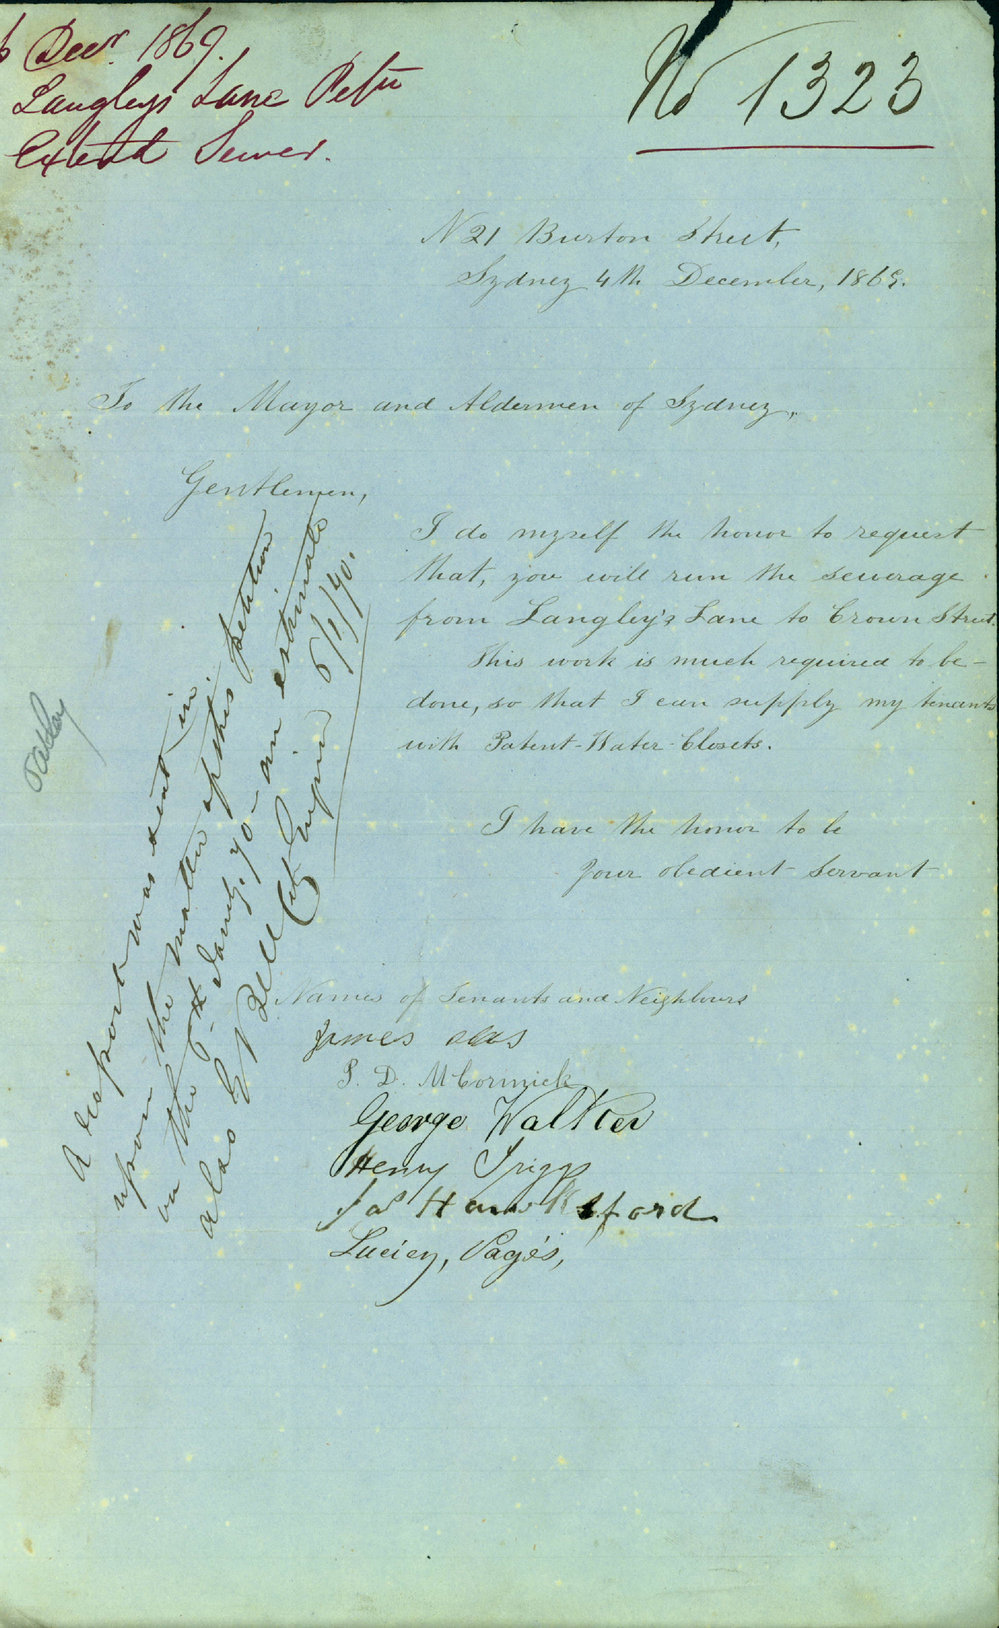 6 Decr. 1869.
Langleys Lane Petn
Extend Sewer.
No 1323
N 21 Burton Street,
Sydney 4th December, 1869.
To the Mayor and Aldermen of Sydney,
Gentlemen,
I do myself the honor to request
that, you will run the sewerage
from Langley's Lane to Crown Street.
This work is much required to be-
done, so that I can supply my tenants
with Patent-Water-Closets.
I have the honor to be
your obedient Servant
Names of Tenants and Neighbours
James
P. D. McCormick
George Walker
Henry Trigg
Jas Hawksford
Lucien, Pagés,
A report was sent in
upon the matter of this petition
on the 5th Jany. 70 - an estimate
also E Bell City Engineer 6/1/70.